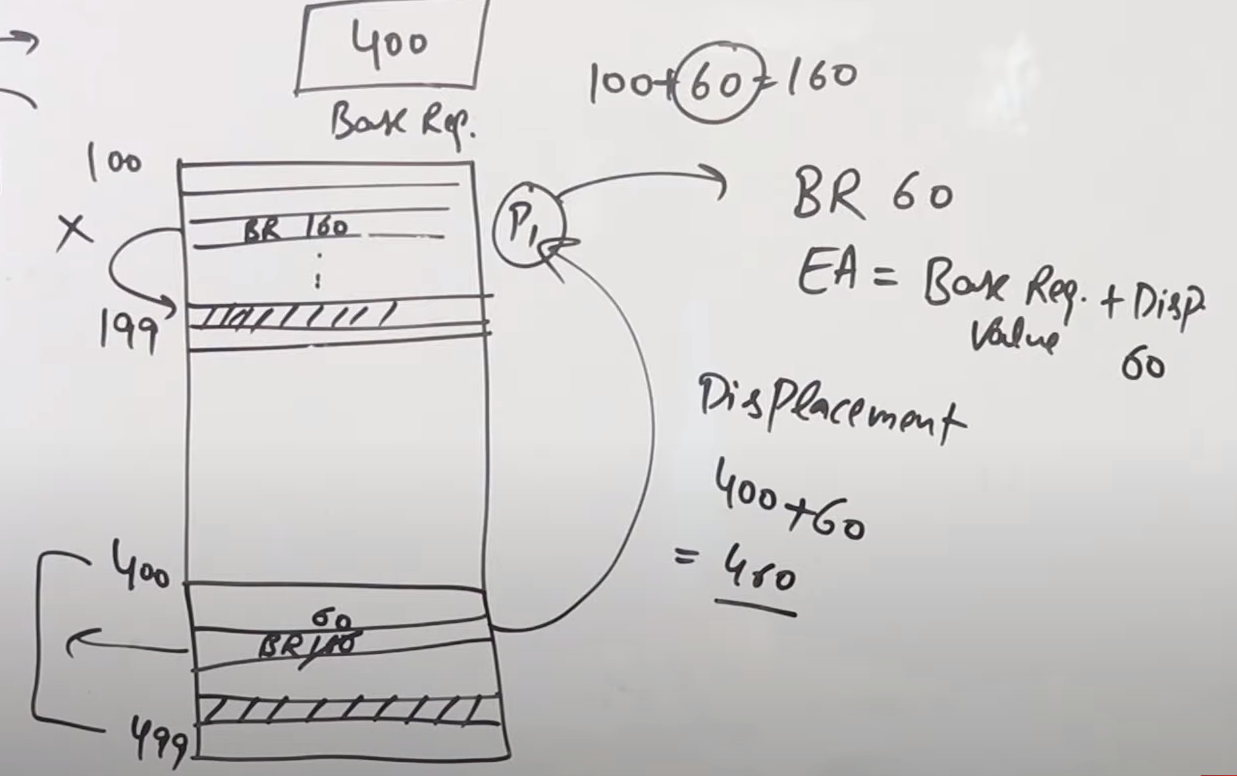 400
Base Reg.
100+60=160
100
X
BR 160
199
P1
BR 60
EA = Base Reg. + Disp.
Value 60
Displacement
400+60
= 460
400
60
BR 160
499